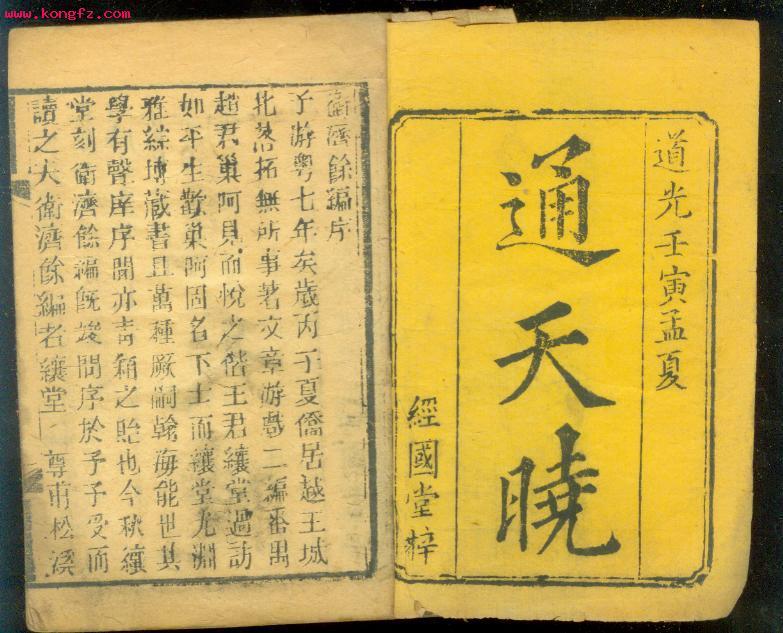 www.kongfz.com
道光壬寅孟夏
通天曉
經國堂梓
衛濟餘編序
予游粵七年矣歲丙子夏僑居越王城
北落拓無所事著文章游戲二編番禺
趙君巢阿見而悅之偕王君纕堂過訪
如平生歡巢阿固名下士而纕堂尤淵
雅綜博藏書且萬種厥嗣翰海能世其
學有聲庠序間亦青箱之貽也今秋纕
堂刻衛濟餘編既竣問序於予予受而
讀之夫衛濟餘編者纕堂 尊甫松溪